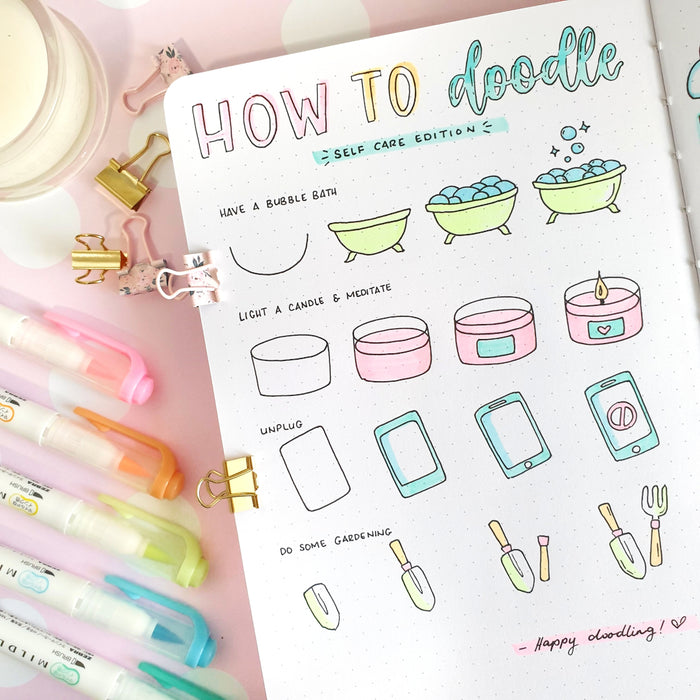 HOW TO doodle
SELF CARE EDITION
HAVE A BUBBLE BATH
LIGHT A CANDLE & MEDITATE
UNPLUG
DO SOME GARDENING
- Happy doodling!
BRUSH
ZEBRA
BRUSH
ZEBRA
MILDL
BRUSH
ZEBRA